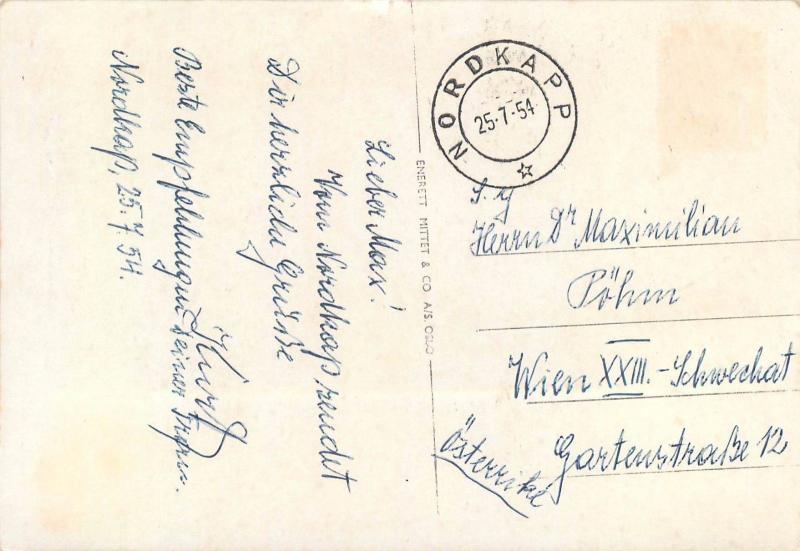 Lieber Max!
Vom Nordkap sendet
Dir herzliche Grüße
Kurt
Beste Empfehlungen Deiner Frau.
Nordkap, 25.7.54.
ENERETT MITTET & CO A/S OSLO
NORDKAPP
25-7-54
Herrn Dr Maximilian
Pöhm
Wien XXIII.-Schwechat
Gartenstraße 12
Österrike